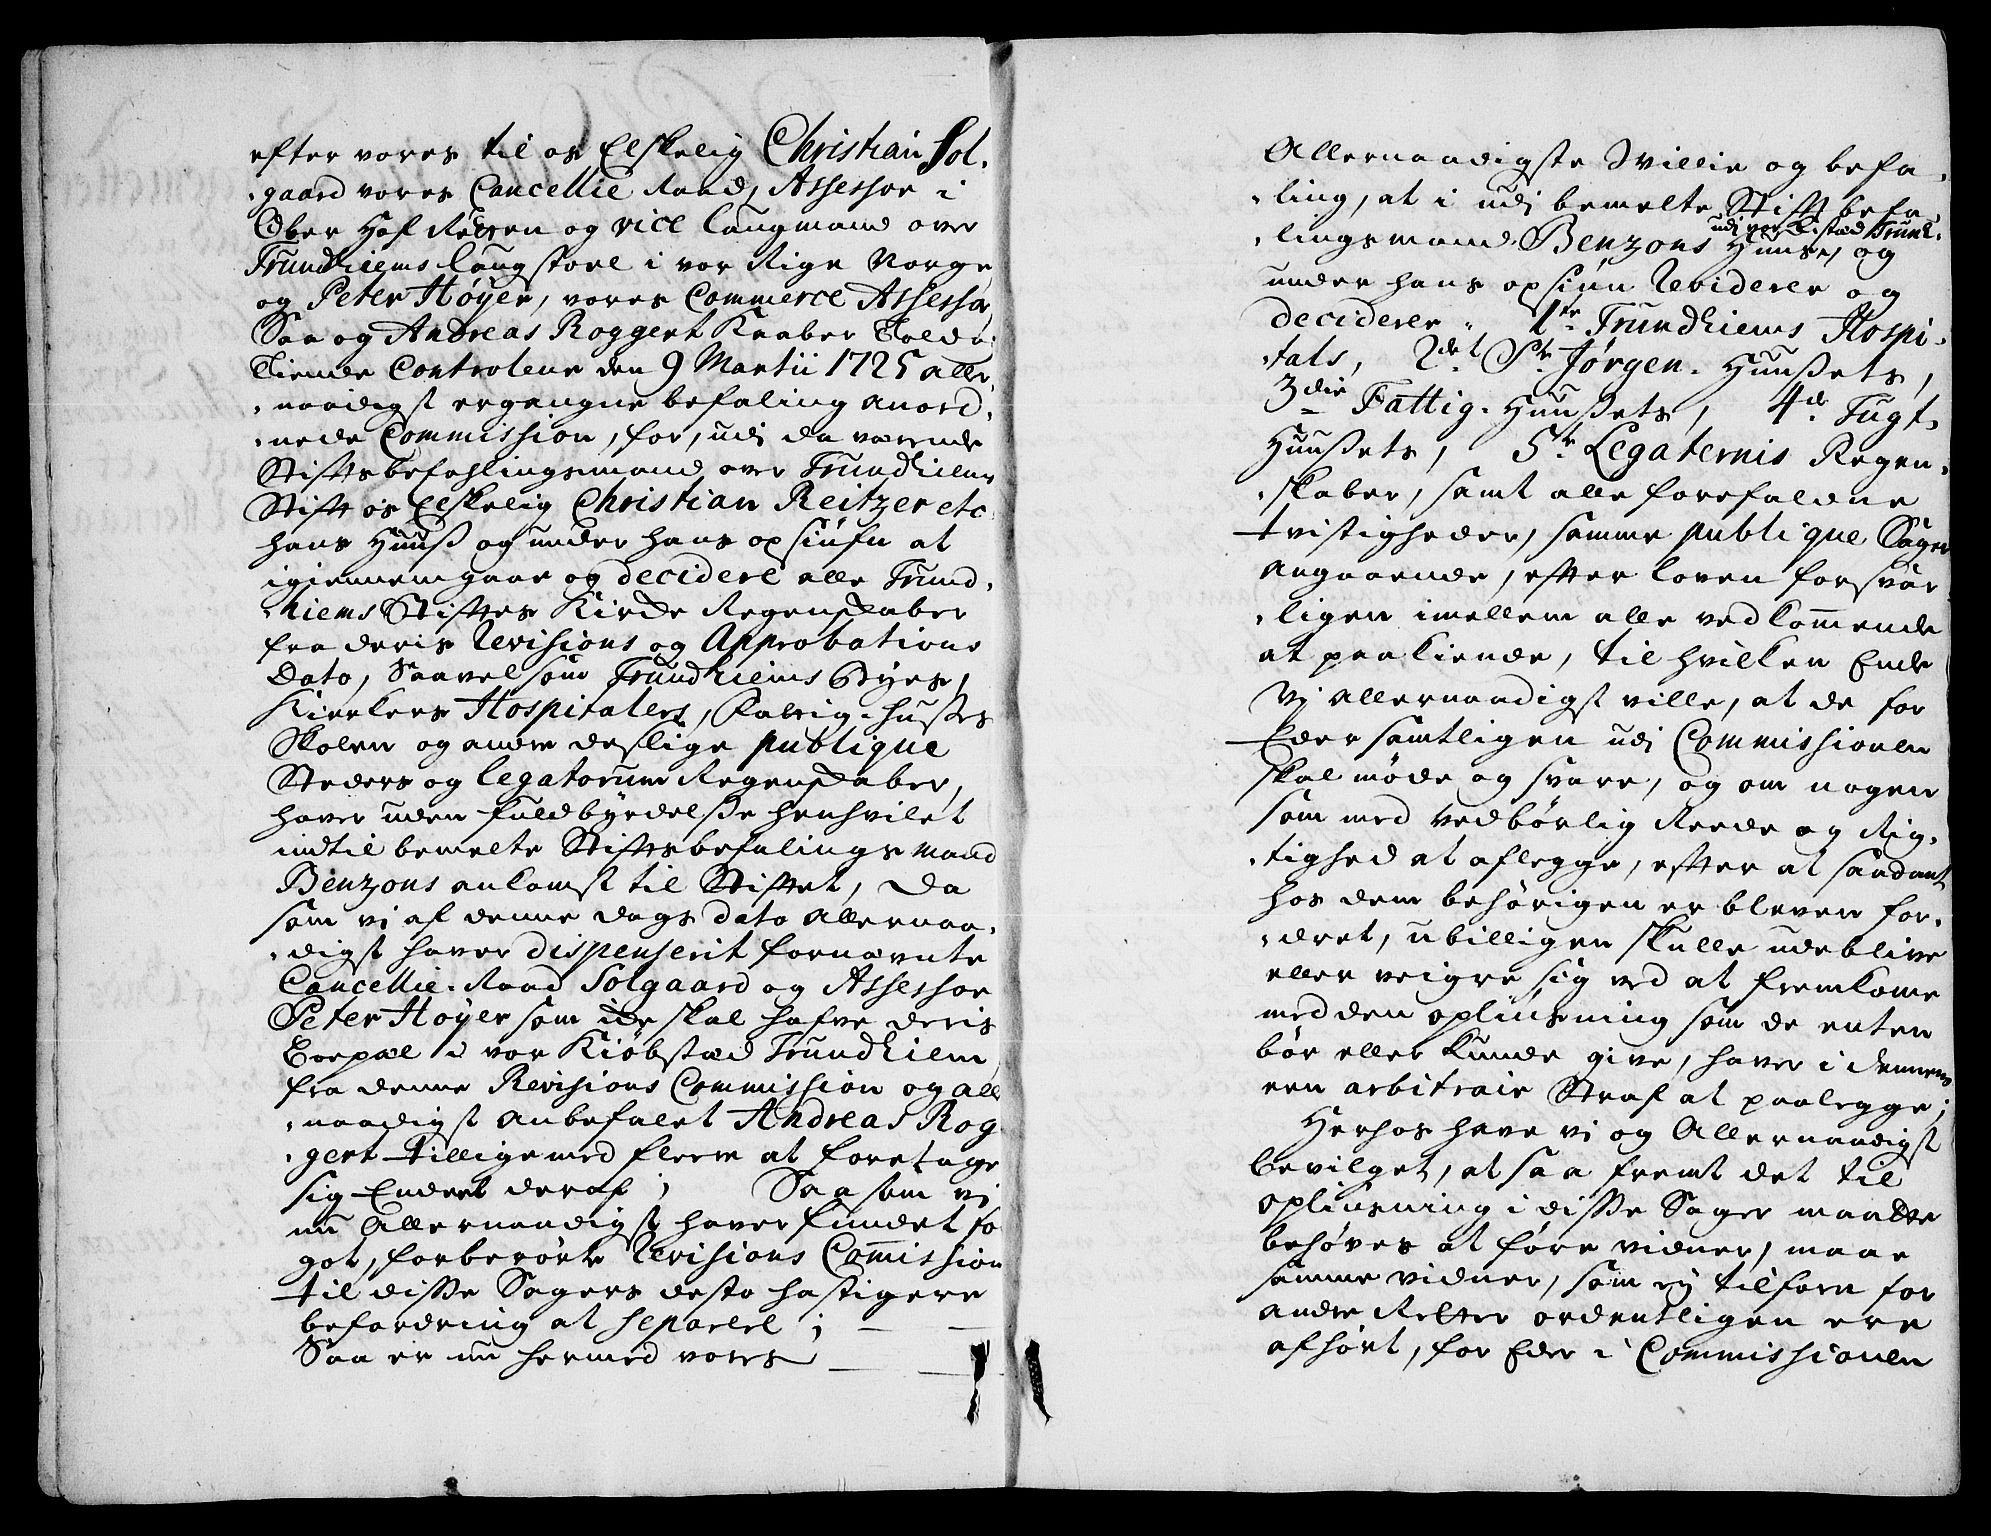 efter vores til os Elskelig Christian Sol-
-gaard vores Cancellie Raad, Assessor i
Ober Hof Retten og vice Laugmand over
Trundhiems Laugstoel i vor Rige Norge
og Peter Höyer, vores Commerce Assessor,
Saa og Andreas Roggert Kaaber Told
Tiende Controleur den 9 Martii 1725 aller-
-naadigst ergangne befaling anord-
-nede Commission, for, udi da værende
Stiftsbefahlingsmand over Trundhiems
Stift os Elskelig Christian Reitzer etc
hans Huuß og under hans opsiufn at
igiennemgaae og decidere alle Trund-
-hiems Stifftes Kircke Regenskaber
fra deris Revisions og Approbations
Dato, Saavelsom Trundhiems Byes,
Kierkers Hospitalers, Fattig-Hußes
Skolen og andre deslige publique
Steders og Legatorum Regenskaber,
haver uden fuldbyrdelße henhvilet
indtil bemelte Stiftsbefalingsmand
Benzons ankomst til Stifftet, Da
som vi af denne dags dato Allernaa-
-digst haver dispenserit fornævnte
Cancellie-Raad Solgaard og Assessor
Peter Höyer som icke skal hafve deris
Boepæl i vor Kiøbstæd Trundhiem,
fra denne Revisions Commission og aller
-naadigst anbefalet Andreas Rog
-gert tillige med fleere at foretage
sig Endeel deraf; Saasom vi
nu Allernaadigst haver fundet fo
got, forberørte Revisions Comission
til disse Sagers desto hastigere
befordring at separere; —
Saa er nu hermed vores —
Allernaadigste Villie og befa-
-ling, at i udj bemelte Stift befa-
udj vor Kistæd Trund.
-lingsmand Benzons Huuse, og
under hans opsiun Revidere og
decidere. 1te Trundhiems Hospi-
-tals, 2det St. Jørgen-Huußets,
3die Fattig-Huußets, 4de Tugt-
Huußets, 5te Legaternis Regen-
-skaber, samt alle forefaldne
tvistigheder, samme publique Sager
angaaende, efter Loven forsvar
-ligen imellem alle vedkommende
at paakiende, til hvilken Ende
Vj allernaadigst ville, at de for
Eder samtligen udj Commissionen
skal møde og svare, og om nogen
som med vedbørlig Reede og Rig-
-tighed at aflegge, efter at saadant
hos dem behørigen er bleven for-
-dret, ubilligen skulle udeblive
eller veigre sig ved at fremkome
med den opliusning som de enten
bør eller kunde give, haver i dennem
een arbitrair Straf at paalegge;
Herhos have vi og Allernaadigst
bevilget, at saa fremt det til
opliusning i disse Sager maatte
behøves at føre vidner, maae
samme vidner, som ej tilforn for
andre Retter ordentligen ere
afhørt, for Eder i Commissionen